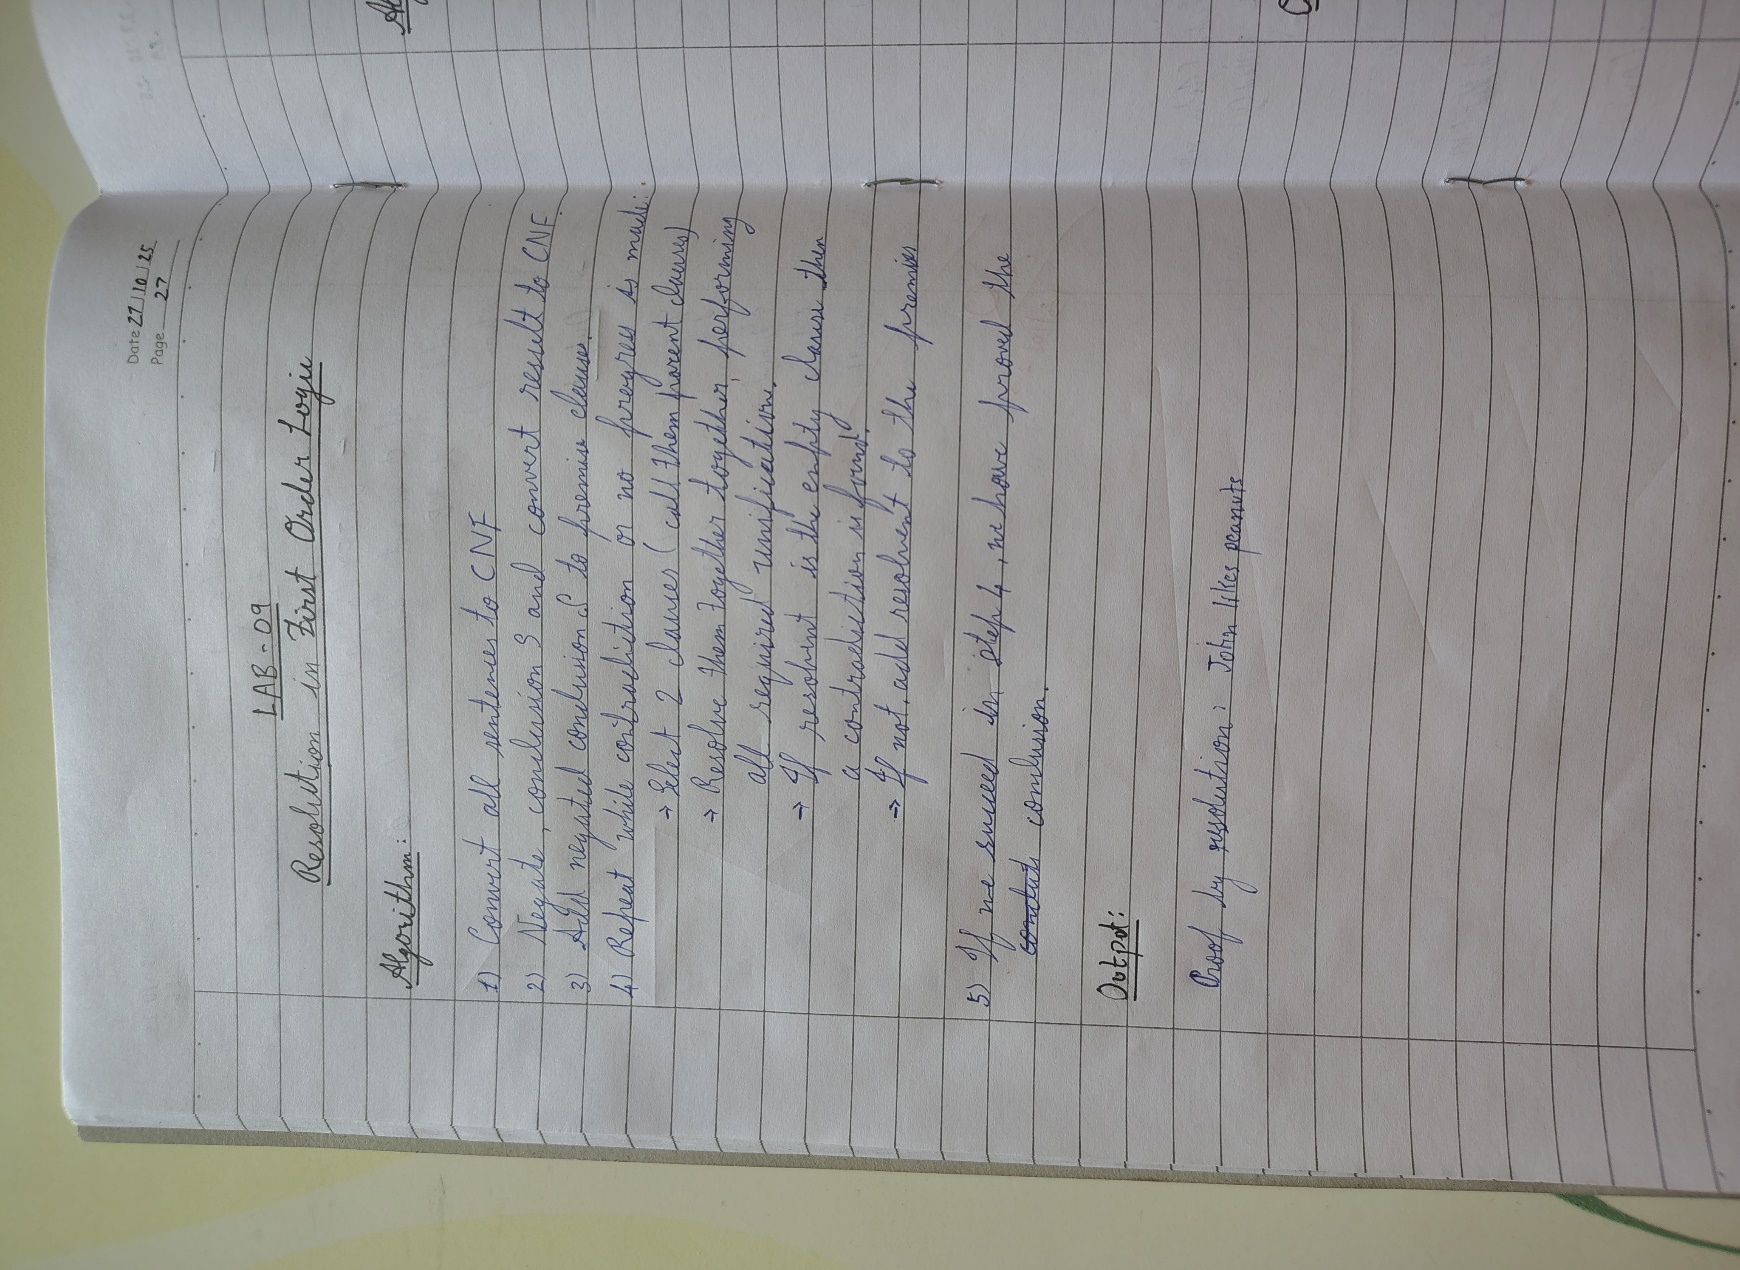 Date 27/10/25
Page 27
LAB-09
Resolution in First Order Logic
Algorithm:
1) Convert all sentences to CNF
2) Negate, conclusion S and convert result to CNF.
3) Add negated conclusion S to premise clauses.
4) Repeat while contradiction or no progres is made:
→ Select 2 clauses (call them parent clauses)
→ Resolve them together together, performing
all required unification.
→ If resolvent is the empty clause then
a contradiction is found.
→ If not, add resolvent to the premises
5) If we succeed in step 4, we have proved the
conclusion.
Output:
Proof by resolution: John likes peanuts